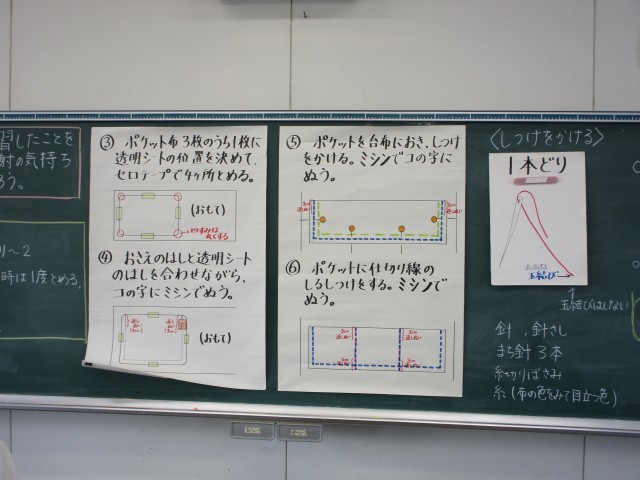 習したことを
謝の気持ち
ろう。
り～2
時は1度とめる。
③ ポケット布3枚のうち1枚に
透明シートの位置を決めて、
セロテープで4ヶ所とめる。
(おもて)
④ おさえのはしと透明シート
のはしを合わせながら、
コの字にミシンでぬう。
(おもて)
⑤ ポケットを台布におき、しつけ
をかける。ミシンでコの字に
ぬう。
⑥ ポケットに仕切り線の
しるしつけをする。ミシンで
ぬう。
〈しつけをかける〉
1本どり
玉結び
↑
玉結びはしない
針 , 針さし
まち針 3本
糸切りばさみ
糸(布の色をみて目立つ色)